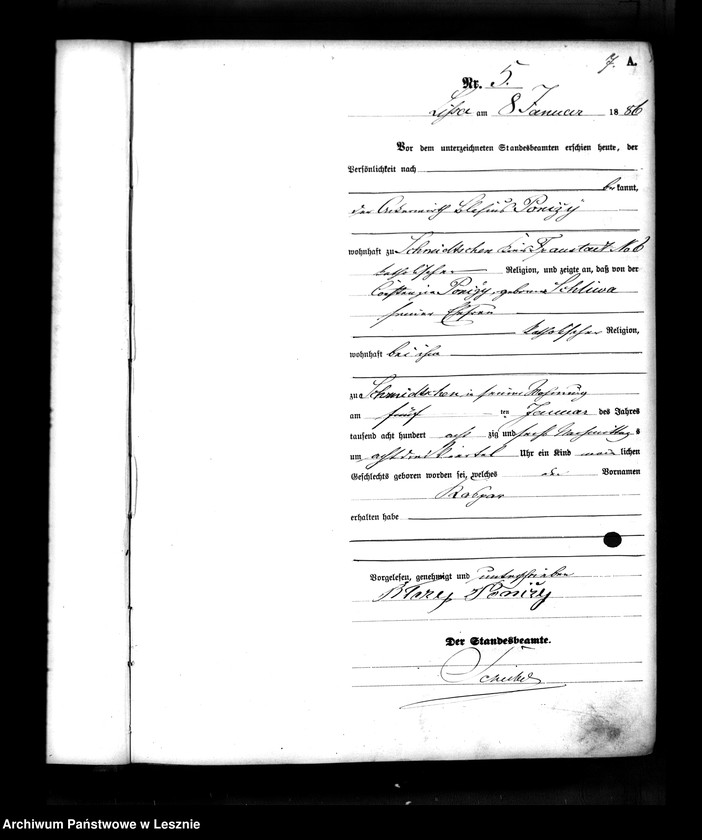 7. A.
Nr. 5.
Lissa am 8 Januar 1886
Vor dem unterzeichneten Standesbeamten erschien heute, der
Persönlichkeit nach
bekannt,
der Ackerwirth Blasius Ponizy
wohnhaft zu Schmidtschen Kreis Fraustadt No 6
katholischer Religion, und zeigte an, daß von der
Constanzia Ponizy, geborene Schliwa
seiner Ehefrau
katholischer Religion,
wohnhaft bei ihm
zu Schmidtschen in seiner Wohnung
am fünf ten Januar des Jahres
tausend acht hundert acht zig und sechs Nachmittags
um acht drei Viertel Uhr ein Kind männlichen
Geschlechts geboren worden sei, welches den Vornamen
Kaspar
erhalten habe
Vorgelesen, genehmigt und unterschrieben
Blazej Ponizy
Der Standesbeamte.
Archiwum Państwowe w Lesznie